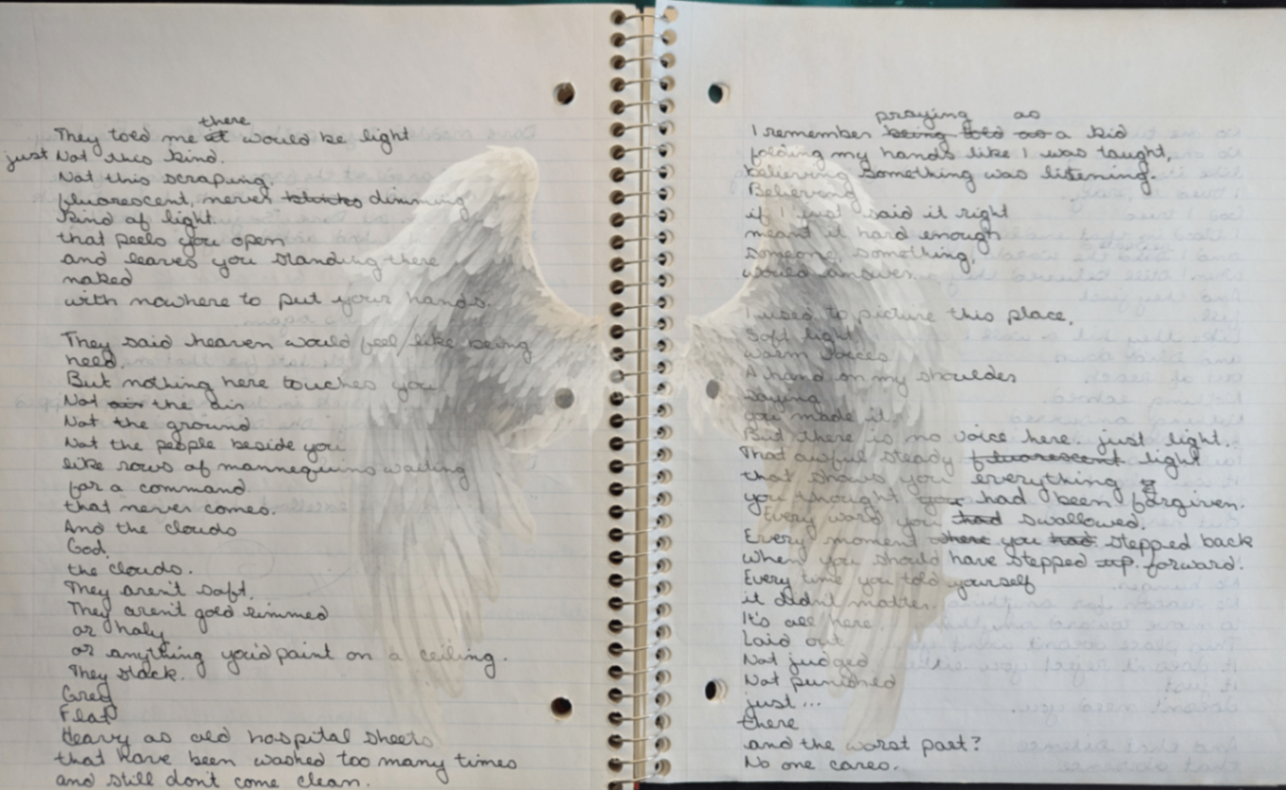 They told me there would be light
just Not this kind.
Not this scraping,
fluorescent, never dimming
kind of light
that peels you open
and leaves you standing there
naked
with nowhere to put your hands.
They said heaven would feel like being
held.
But nothing here touches you
Not the air
Not the ground
Not the people beside you
like rows of mannequins waiting
for a command
that never comes.
And the clouds
God,
the clouds.
They aren't soft.
They aren't gold rimmed
or holy
or anything you'd paint on a ceiling.
They stack.
Grey
Flat
Heavy as old hospital sheets
that have been washed too many times
and still don't come clean.
I remember praying as a kid
folding my hands like I was taught,
believing something was listening.
Believing
if I just said it right
meant it hard enough
someone, something,
would answer.
I used to picture this place.
Soft light
warm voices
A hand on my shoulder
saying
you made it.
But there is no voice here. just light.
That awful steady light
that shows you everything
you thought had been forgiven.
Every word you swallowed.
Every moment you stepped back
When you should have stepped forward.
Every time you told yourself
it didn't matter.
It's all here.
Laid out
Not judged
Not punished
just...
there
and the worst part?
No one cares.